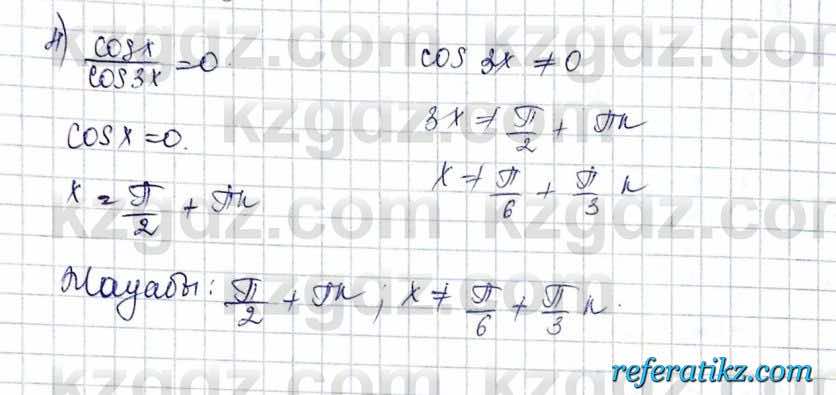 4) cosx/cos3x = 0.
cos 3x ≠ 0
cosx = 0.
3x ≠ π/2 + πn
x = π/2 + πn
x ≠ π/6 + π/3 n
Жауабы: π/2 + πn; x ≠ π/6 + π/3 n.
kzgdz.com
referatikz.com